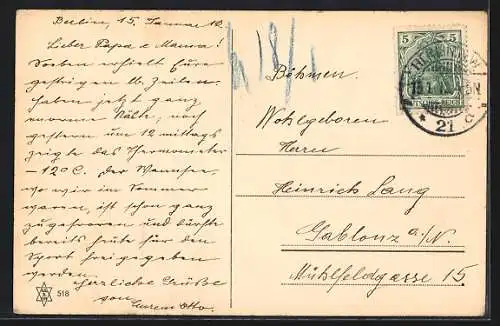 Berlin, 15. Januar 10.
Lieber Papa u Mama!
Soeben erhielt Eure
gestrigen lb. Zeilen.
Haben jetzt ganz
enorme Kälte, noch
gestern um 12 mittags
zeigte das Thermometer
-12°C. Der Wannsee,
wo wir im Sommer
waren, ist schon ganz
zugefroren und dürfte
bereits heute für den
Sport freigegeben
werden.
Herzliche Grüße
von
Eurem Otto.
518
Böhmen.
Wohlgeboren
Herrn
Heinrich Lang
Gablonz a/N.
Mühlfeldgasse 15
5 5
DEUTSCHES REICH
BERLIN
* 21 d *